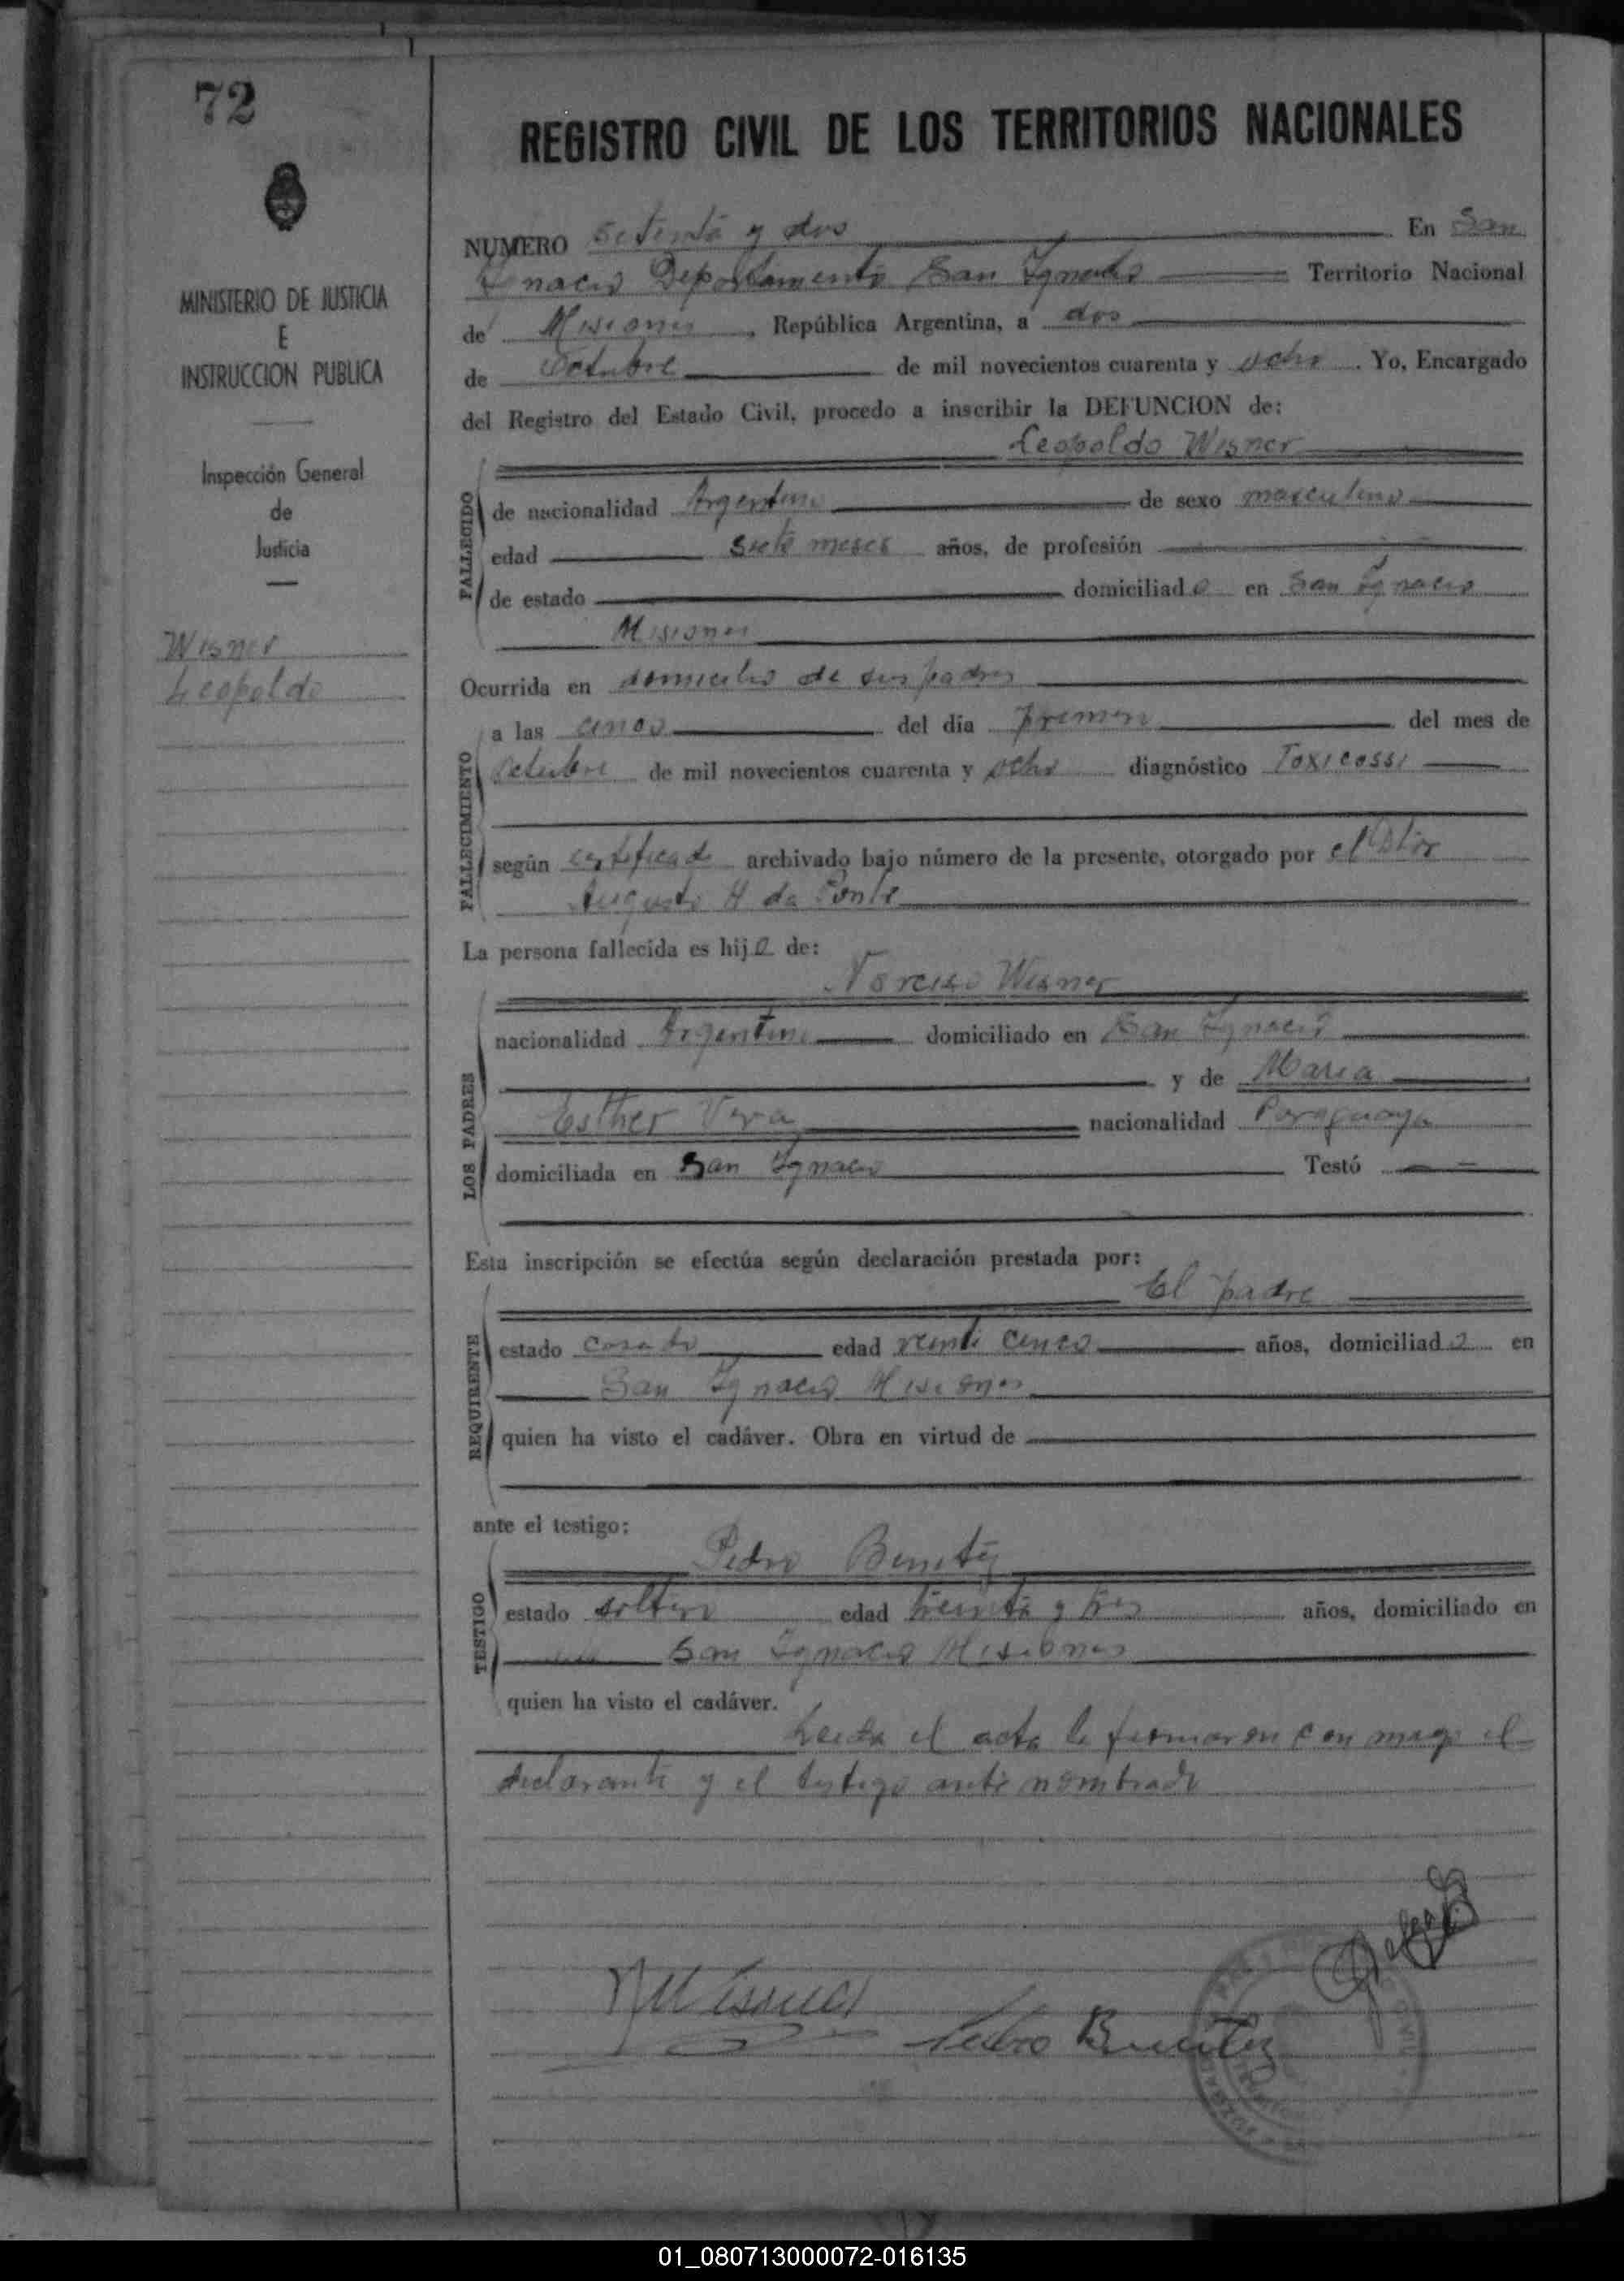 72
MINISTERIO DE JUSTICIA
E
INSTRUCCION PUBLICA
Inspección General
de
Justicia
Wisner
Leopoldo
REGISTRO CIVIL DE LOS TERRITORIOS NACIONALES
NUMERO Setenta y dos En San
Ignacio Departamento San Ignacio Territorio Nacional
de Misiones, República Argentina, a dos
de Octubre de mil novecientos cuarenta y ocho. Yo, Encargado
del Registro del Estado Civil, procedo a inscribir la DEFUNCION de:
Leopoldo Wisner
FALLECIDO
de nacionalidad Argentino de sexo masculino
edad siete meses años, de profesión
de estado domiciliado en San Ignacio
Misiones
Ocurrida en domicilio de sus padres
FALLECIMIENTO
a las cinco del día primero del mes de
Octubre de mil novecientos cuarenta y ocho diagnóstico Toxicossi
según certificado archivado bajo número de la presente, otorgado por el
Augusto H da Ponte
La persona fallecida es hijo de:
Narciso Wisner
LOS PADRES
nacionalidad Argentino domiciliado en San Ignacio
y de Maria
Esther Vera nacionalidad Paraguaya
domiciliada en San Ignacio Testó
Esta inscripción se efectúa según declaración prestada por:
El padre
REQUIRENTE
estado casado edad veinti cinco años, domiciliado en
San Ignacio Misiones
quien ha visto el cadáver. Obra en virtud de
ante el testigo:
Pedro Benitez
TESTIGO
estado soltero edad treinta y tres años, domiciliado en
San Ignacio Misiones
quien ha visto el cadáver.
Leida el acta la firmaron con migo el
declarante y el testigo ante nombrado
NWisner
Pedro Benitez
01_080713000072-016135